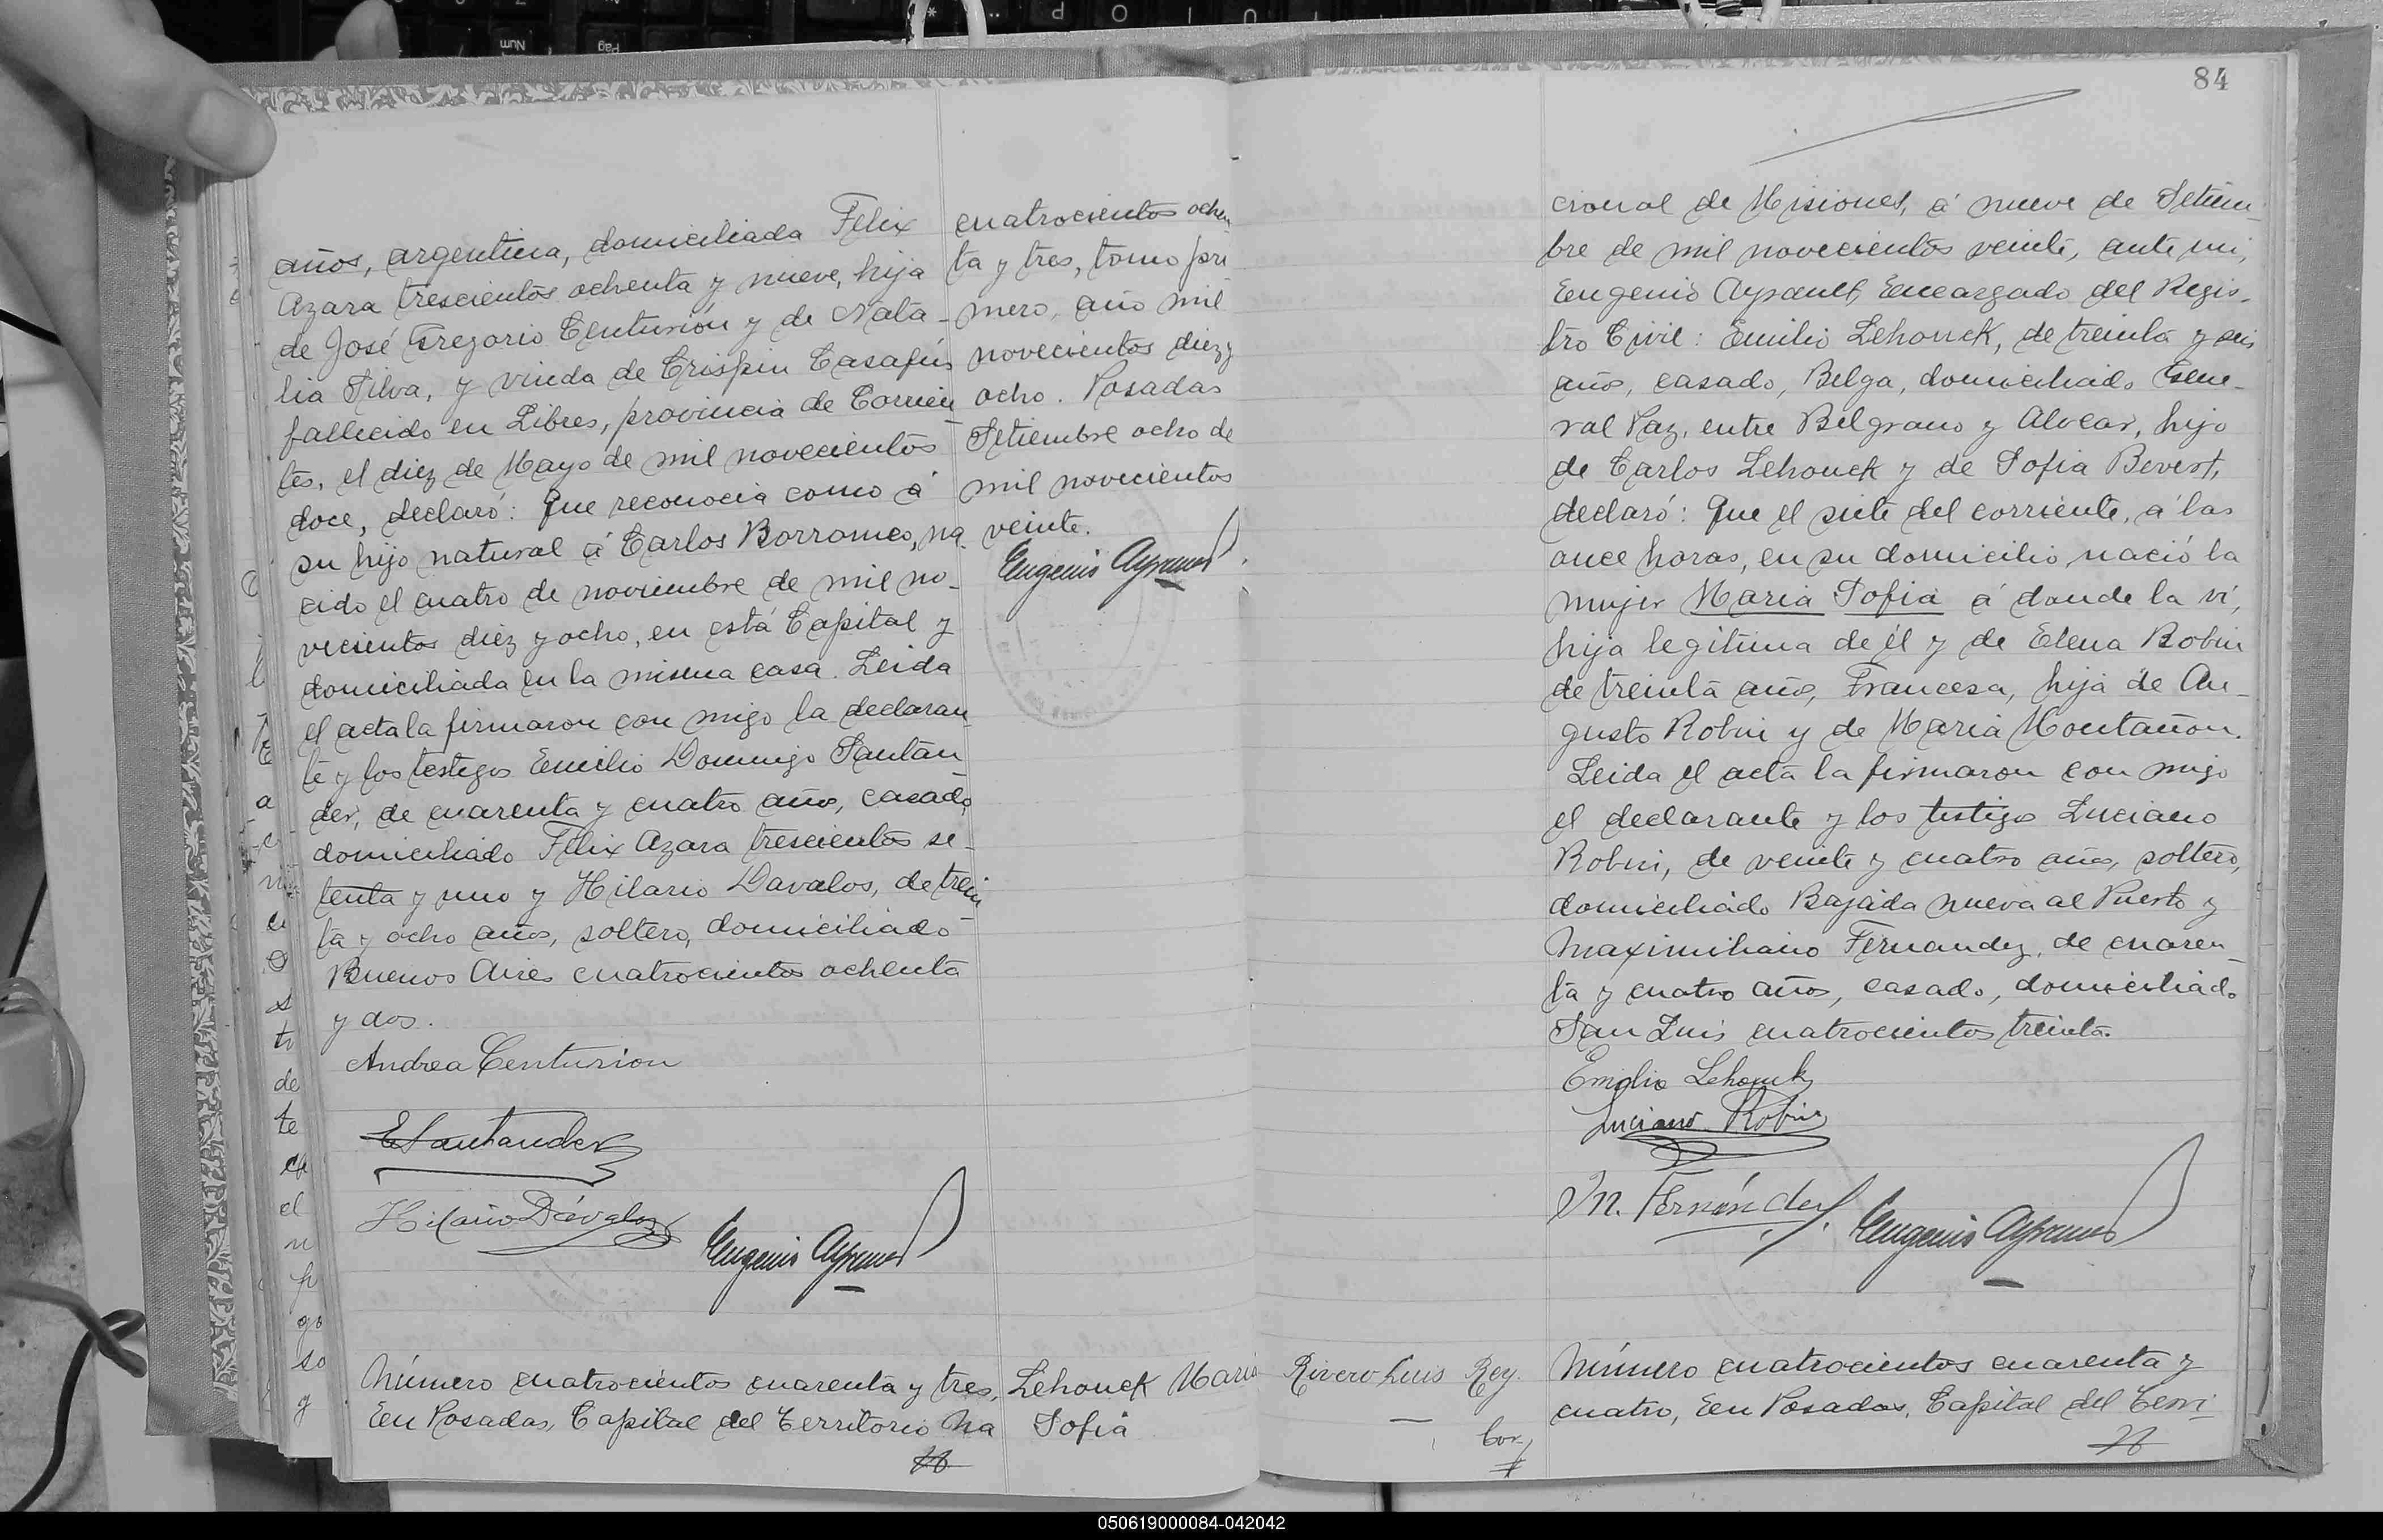 años, argentina, domiciliada Felix
Azara trescientos ochenta y nueve, hija
de José Gregorio Centurión y de Nata-
lia Silva, y viuda de Crispin Casafús
fallecido en Libres, provincia de Corrien
tes, el diez de Mayo de mil novecientos
doce, declaró: Que reconocia como á
su hijo natural á Carlos Borromeo, na
cido el cuatro de noviembre de mil no-
vecientos diez y ocho, en está Capital y
domiciliada en la misma casa. Leida
el acta la firmaron con migo la declaran
te y los testigos Emilio Domingo Santan
der, de cuarenta y cuatro años, casado,
domiciliado Félix Azara trescientos se-
tenta y uno y Hilario Davalos, de trein
ta y ocho años, soltero, domiciliado
Buenos Aires cuatrocientos ochenta
y dos.
Andrea Centurion
E Santander
Hilario Dávalos
Eugenio Ayrault
Número cuatrocientos cuarenta y tres,
En Posadas, Capital del Territorio Na
cuatrocientos ochen
ta y tres, tomo pri
mero, año mil
novecientos diez y
ocho. Posadas
Setiembre ocho de
mil novecientos
veinte.
Eugenio Ayrault
Lehouck Maria
Sofia
84
cional de Misiones, á nueve de Setiem-
bre de mil novecientos veinte, ante mi,
Eugenio Ayrault, Encargado del Regis-
tro Civil: Emilio Lehouck, de treinta y seis
años, casado, Belga, domiciliado Gene-
ral Paz, entre Belgrano y Alvear, hijo
de Carlos Lehouck y de Sofia Beverst,
declaró: Que el siete del corriente, á las
once horas, en su domicilio, nació la
mujer Maria Sofia á donde la vi,
hija legítima de él y de Elena Robin
de treinta años, Francesa, hija de Au-
gusto Robin y de Maria Montañon.
Leida el acta la firmaron con migo
el declarante y los testigos Luciano
Robin, de veinte y cuatro años, soltero,
domiciliado Bajada nueva al Puerto y
Maximiliano Fernandez, de cuaren-
ta y cuatro años, casado, domiciliado
San Luis cuatrocientos treinta.
Emilio Lehouck
Luciano Robin
M. Fernández
Eugenio Ayrault
Rivero Luis Rey.
Número cuatrocientos cuarenta y
cuatro, En Posadas, Capital del Terri-
050619000084-042042